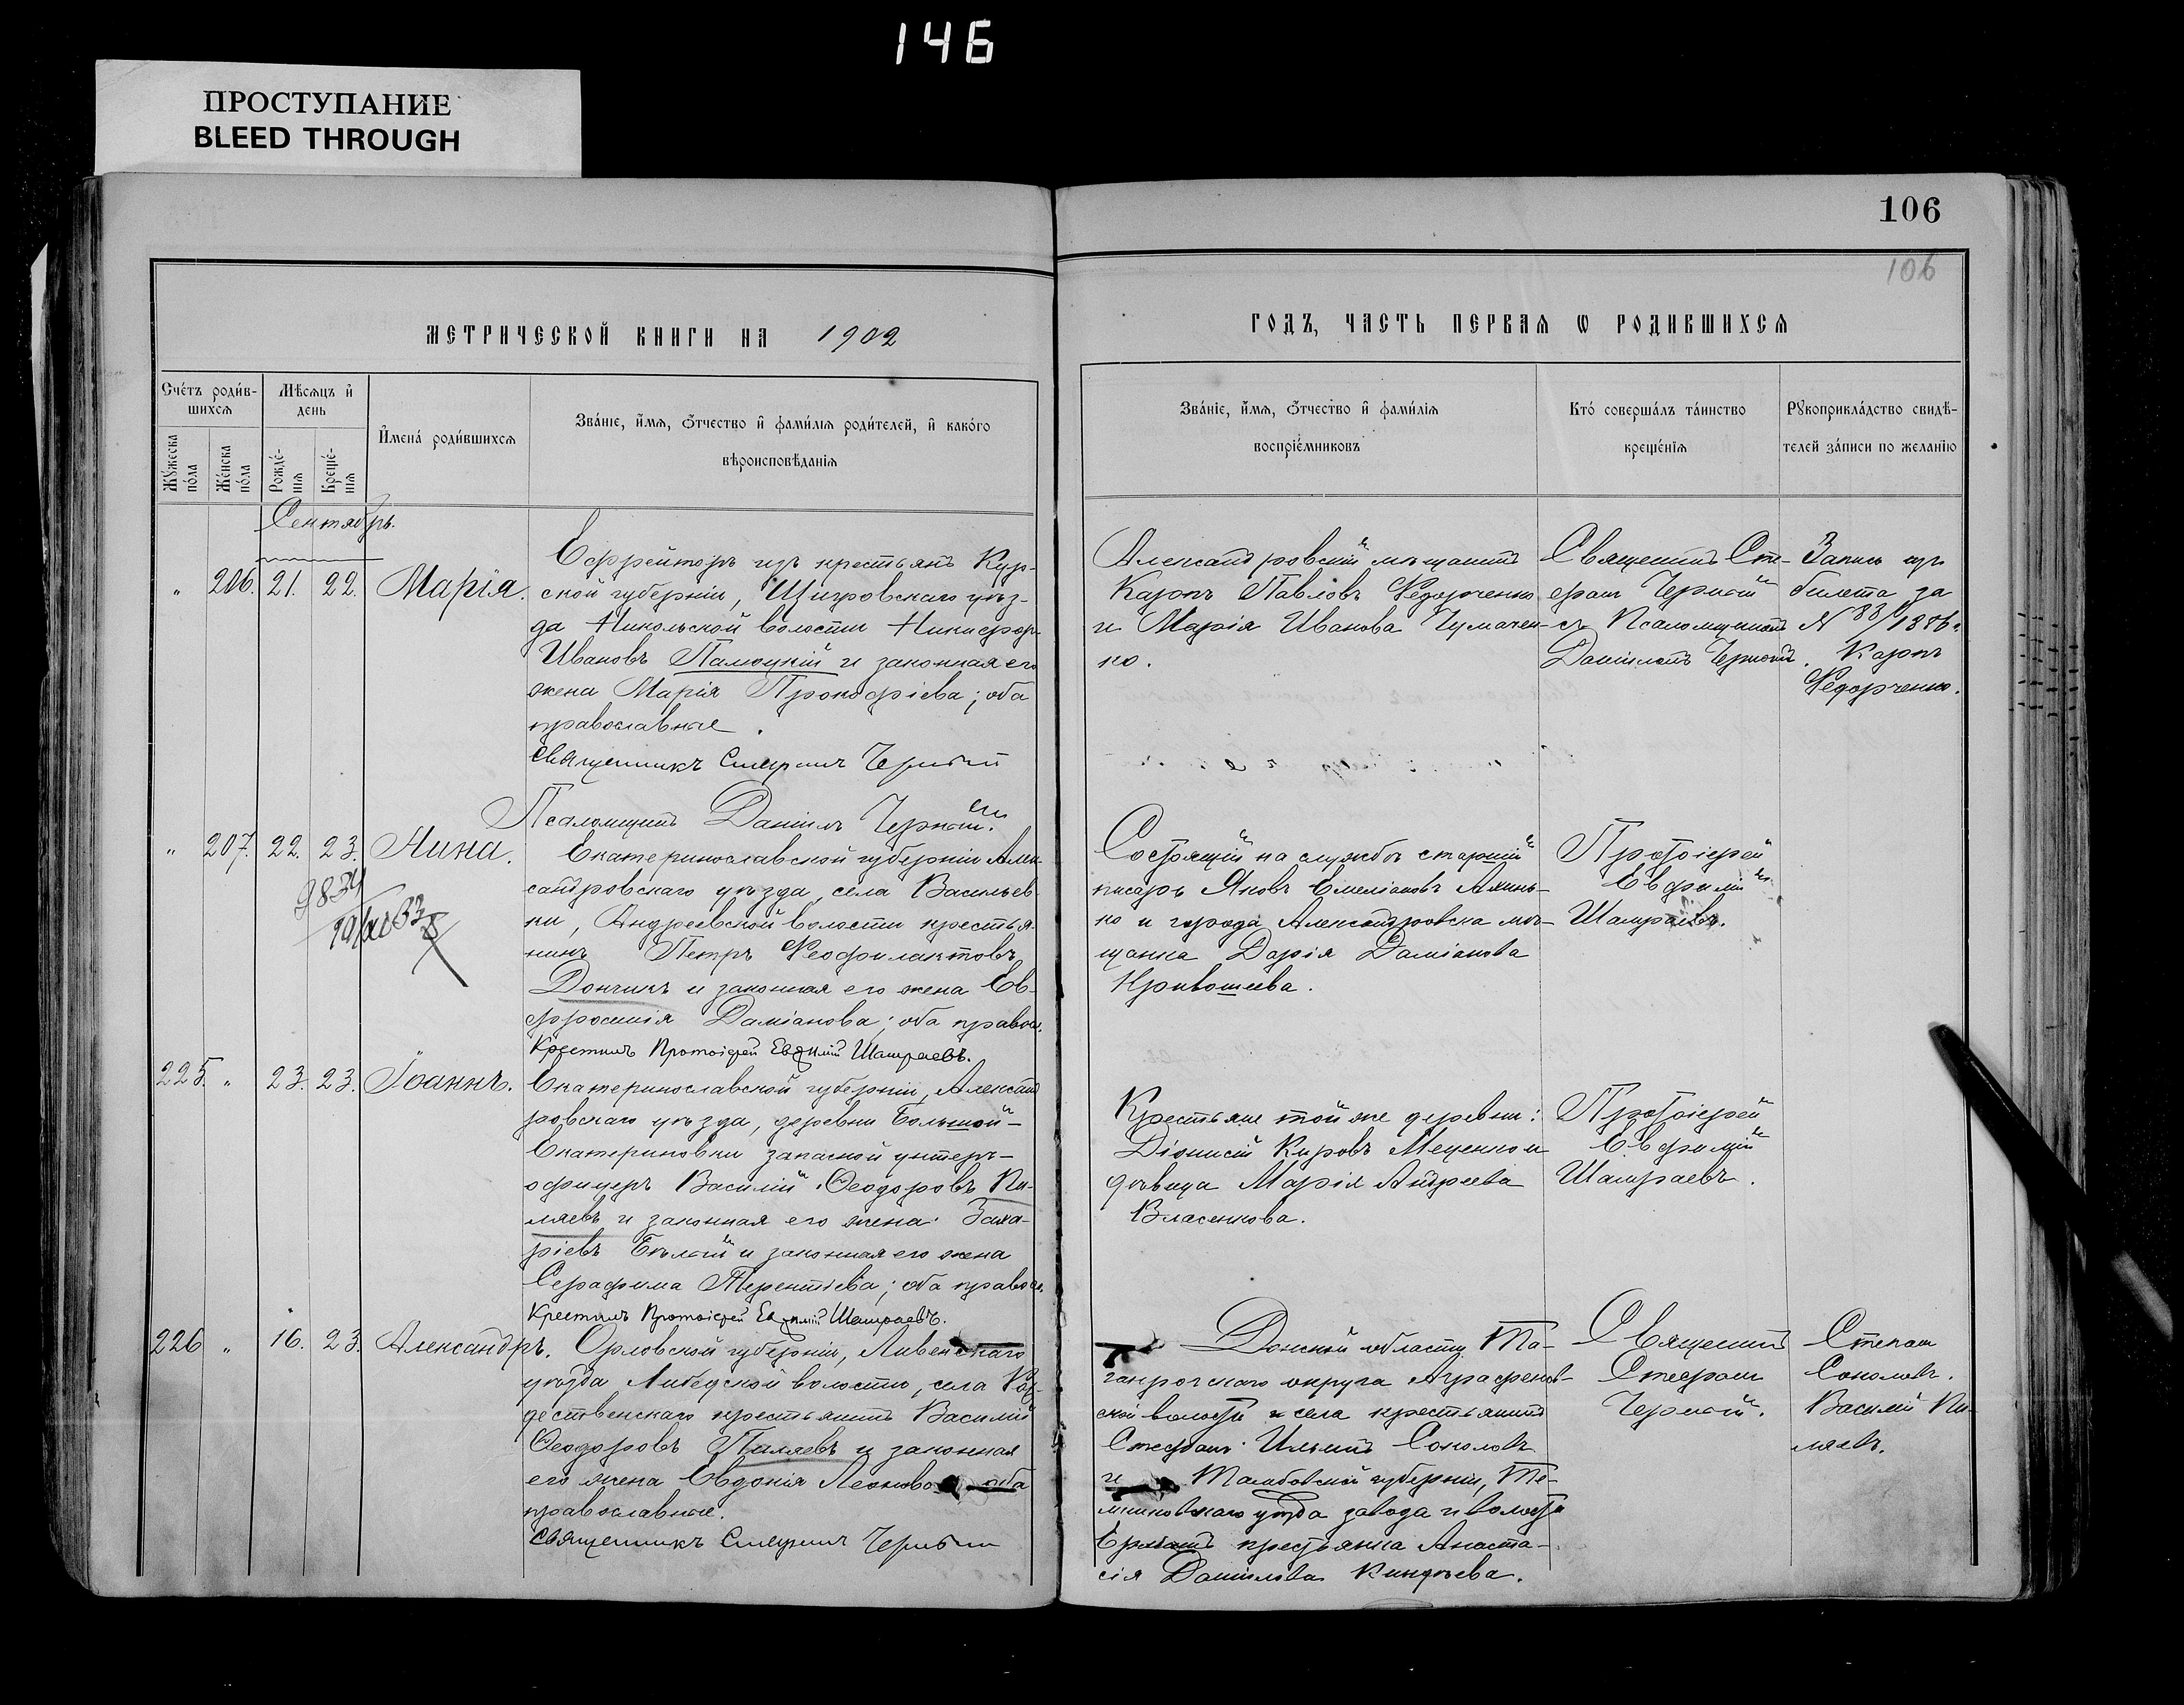 146
ПРОСТУПАНИЕ
BLEED THROUGH
106
106
МЕТРИЧЕСКОЙ КНИГИ НА 1902
ГОДЪ, ЧАСТЬ ПЕРВАЯ Ѡ РОДИВШИХСЯ
Счетъ родив-
шихся
Мѣсяцъ и
день
Мужеска
пола
Женска
пола
Рожде-
нія
Креще-
нія
Имена родившихся
Званіе, имя, отчество и фамилія родителей, и какого
вѣроисповѣданія
Званіе, имя, отчество и фамилія
воспріемниковъ
Кто совершалъ таинство
крещенія
Рукоприкладство свидѣ-
телей записи по желанію
Сентябрь.
" 206. 21. 22. Марія.
Ефрейторъ изъ крестьянъ Кур-
ской губерніи, Щигровскаго уѣз-
да Никольской волости Никифоръ
Ивановъ и законная его
жена Марія Прокофіева; оба
православные.
Священникъ Стефанъ Черный
Псаломщикъ Даніилъ Черный.
Александровскій мѣщанинъ
Карпъ Павловъ Ѳедорченко
и Марія Иванова Чумачен-
ко.
Священникъ Сте-
фанъ Черный
съ Псаломщикомъ
Даніиломъ Чернымъ.
Запись изъ
билета за
N 83/1886
Карпъ
Ѳедорченко.
" 207. 22. 23. Анна.
9834
Екатеринославской губерніи Алек-
сандровскаго уѣзда, села Васильев-
ки, Андреевской волости крестья-
нинъ Петръ Ѳеофилактовъ
Дончикъ и законная его жена Ев-
фросинія Даміанова; оба правос.
Крестилъ Протоіерей Евфимій Шамраевъ.
Состоящій на службѣ старшій
писарь Яковъ Емеліановъ
и города Александровска мѣ-
щанка Дарія Даміанова
Кривошеева.
Протоіерей
Евфимій
Шамраевъ.
225. " 23. 23. Іоаннъ.
Екатеринославской губерніи, Александ
ровскаго уѣзда, деревни Большой-
Екатериновки запасной унтеръ-
офицеръ Василій Ѳеодоровъ Пи-
ляевъ и законная его жена Заха-
ріевъ Бѣлый и законная его жена
Серафима Терентіева; оба правос.
Крестилъ Протоіерей Евфимій Шамраевъ.
Крестьяне той же деревни:
Діонисій Кировъ и
дѣвица Марія Андреева
Власенкова.
Протоіерей
Евфимій
Шамраевъ.
226 " 16. 23. Александръ.
Орловской губерніи, Ливенскаго
уѣзда волости, села Рож-
дественскаго крестьянинъ Василій
Ѳеодоровъ Пиляевъ и законная
его жена Евдокія Леонова оба
православные.
Священникъ Стефанъ Черный
Донской области Та-
ганрогскаго округа Аграфенов-
ской волости и села крестьянинъ
Стефанъ Ильинъ Соколовъ
и Тамбовской губерніи, Те-
мниковскаго уѣзда завода и волости
крестьянка Анаста-
сія Даніилова Киндѣева.
Священникъ
Стефанъ
Черный.
Степанъ
Соколовъ.
Василій Пи-
ляевъ.